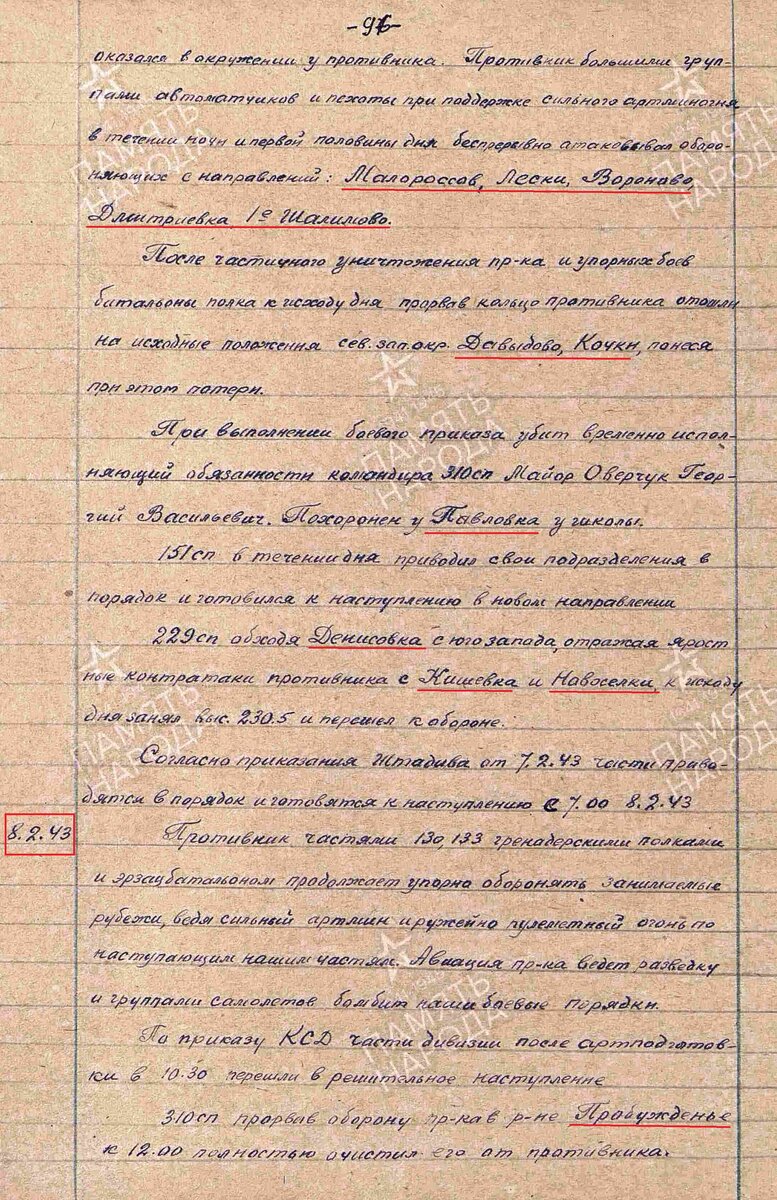 -96-
оказался в окружении у противника. Противник большими груп-
пами автоматчиков и пехоты при поддержке сильного артминогня
в течении ночи и первой половины дня беспрерывно атаковывал оборо-
няющих с направлений: Малороссов, Лески, Вороново,
Дмитриевка, 1е Шалимово.
После частичного уничтожения пр-ка и упорных боев
батальоны полка к исходу дня прорвав кольцо противника отошли
на исходные положения сев. зап. окр. Давыдово, Кочки, понеся
при этом потери.
При выполнении боевого приказа убит временно испол-
няющий обязанности командира 310сп Майор Оверчук Геор-
гий Васильевич. Похоронен у Павловка у школы.
151сп в течении дня приводил свои подразделения в
порядок и готовился к наступлению в новом направлении
229сп обходя Денисовка с юго запада, отражая ярост
ные контратаки противника с Кишевка и Новоселки, к исходу
дня занял выс. 230.5 и перешел к обороне.
Согласно приказания Штадива от 7.2.43 части приво-
дятся в порядок и готовятся к наступлению с 7.00 8.2.43
8.2.43
Противник частями 130, 133 гренадерскими полками
и эрзацбатальоном продолжает упорно оборонять занимаемые
рубежи, ведя сильный артмин и ружейно пулеметный огонь по
наступающим нашим частям. Авиация пр-ка ведет разведку
и группами самолетов бомбит наши боевые порядки.
По приказу КСД части дивизии после артподготов-
ки в 10.30 перешли в решительное наступление
310сп прорвав оборону пр-ка в р-не Пробужденье
к 12.00 полностью очистил его от противника.
ПАМЯТЬ
НАРОДА